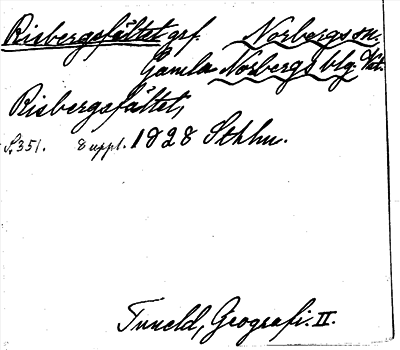 Risbergsfältet grf. Norbergs sn.
Gamla Norbergs blg. Vst.
Risbergsfältet,
S. 351. 8 uppl. 1828 Sthlm.
Tuneld, Geografi. II.